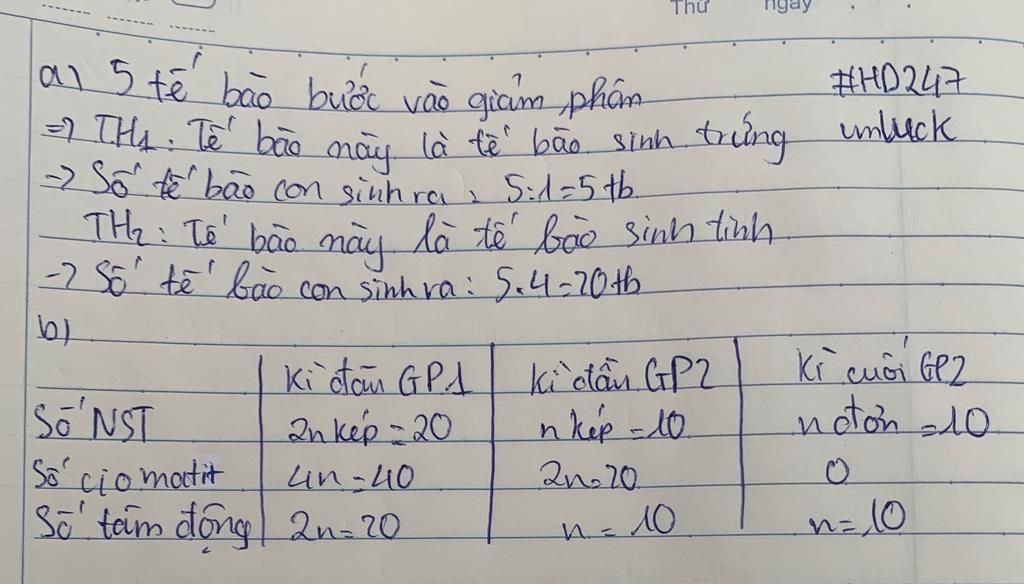 Thứ ngày
a) 5 tế bào bước vào giảm phân #HD247
=> TH1: Tế bào này là tế bào sinh trứng umluck
-> Số tế bào con sinh ra: 5.1=5tb
TH2: Tế bào này là tế bào sinh tinh
-> Số tế bào con sinh ra: 5.4=20tb
b)
Kì đầu GP1 Kì đầu GP2 Kì cuối GP2
Số NST 2n kép=20 n kép=10 n đơn=10
Số ciomatit 4n=40 2n=20 0
Số tâm động 2n=20 n=10 n=10